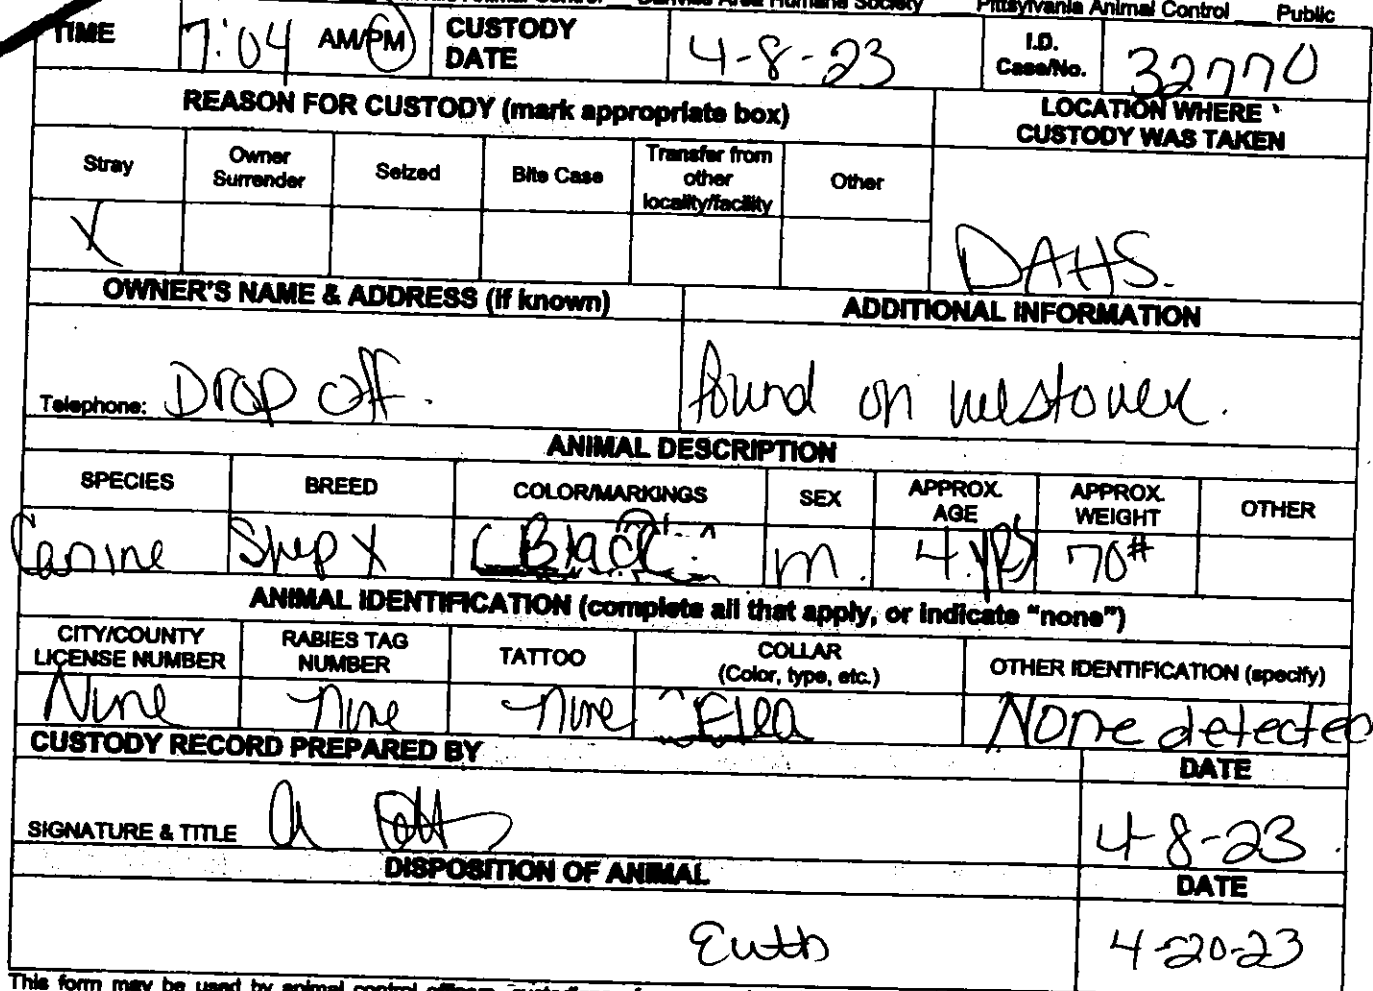 Animal Control Danville Area Humane Society Pittsylvania Animal Control Public
TIME 7:04 AM/PM CUSTODY DATE 4-8-23 I.D. Case/No. 32770
REASON FOR CUSTODY (mark appropriate box) LOCATION WHERE CUSTODY WAS TAKEN
Stray Owner Surrender Seized Bite Case Transfer from other locality/facility Other
X DAHS.
OWNER'S NAME & ADDRESS (if known) ADDITIONAL INFORMATION
Telephone: Drop off. found on westover.
ANIMAL DESCRIPTION
SPECIES BREED COLOR/MARKINGS SEX APPROX. AGE APPROX. WEIGHT OTHER
Canine Shep X Black M. 4 yrs 70#
ANIMAL IDENTIFICATION (complete all that apply, or indicate "none")
CITY/COUNTY LICENSE NUMBER RABIES TAG NUMBER TATTOO COLLAR (Color, type, etc.) OTHER IDENTIFICATION (specify)
None None None Flea None detected
CUSTODY RECORD PREPARED BY DATE
SIGNATURE & TITLE 4-8-23
DISPOSITION OF ANIMAL DATE
Euth 4-20-23
This form may be used by animal control officers, custodians